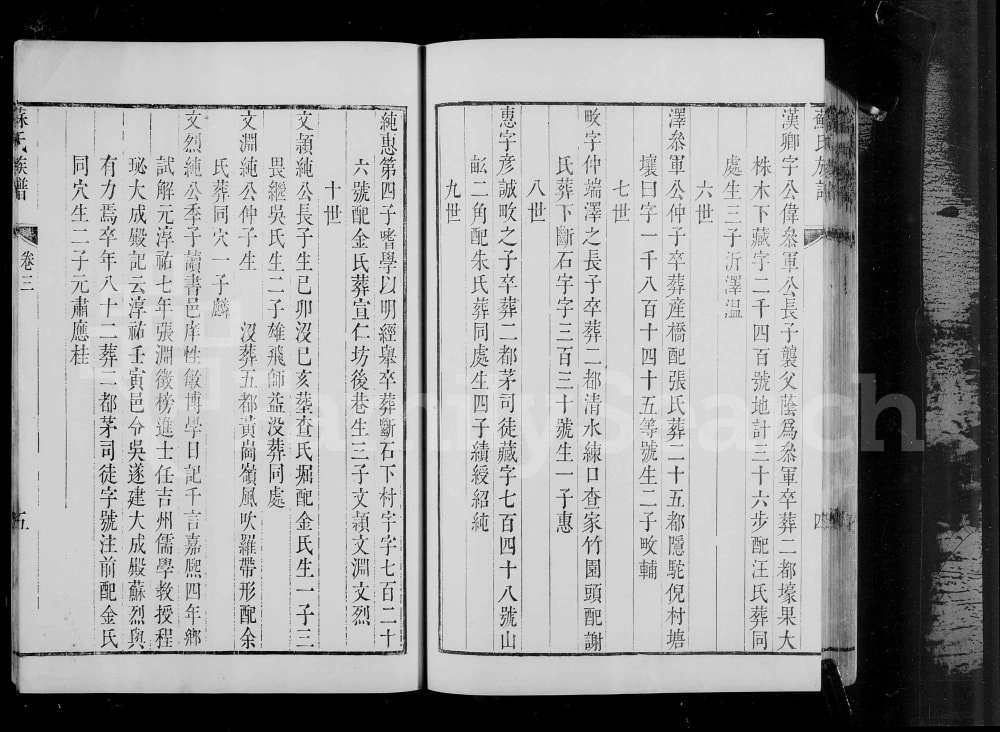 漢卿字公偉叅軍公長子襲父蔭爲叅軍卒葬二都壕果大
株木下藏字二千四百號地計三十六步配汪氏葬同
處生三子沂澤溫
六世
澤叅軍公仲子卒葬産橋配張氏葬二十五都隱駝倪村塘
壤曰字一千八百十四十五等號生二子畋輔
七世
畋字仲端澤之長子卒葬二都清水練口查家竹園頭配謝
氏葬下斷石宇字三百三十號生一子惠
八世
惠字彦誠畋之子卒葬二都茅司徒藏字七百四十八號山
畝二角配朱氏葬同處生四子績綬紹純
九世
純惠第四子嗜學以明經舉卒葬斷石下村宇字七百二十
六號配金氏葬宣仁坊後巷生三子文潁文淵文烈
十世
文潁純公長子生己卯沒已亥塟查氏堀配金氏生一子三
畏繼吳氏生二子雄飛師益没葬同處
文淵純公仲子生 沒葬五都黃崗嶺風吹羅帶形配余
氏葬同穴一子麟
文烈純公季子讀書邑庠性敏博學日記千言嘉熙四年鄉
試解元淳祐七年張淵徵榜進士任吉州儒學教授程
珌大成殿記云淳祐壬寅邑令吳遂建大成殿蘇烈與
有力焉卒年八十二葬二都茅司徒字號注前配金氏
同穴生二子元肅應桂
蘇氏族譜
卷三
五
蘇氏族譜
四
FamilySearch